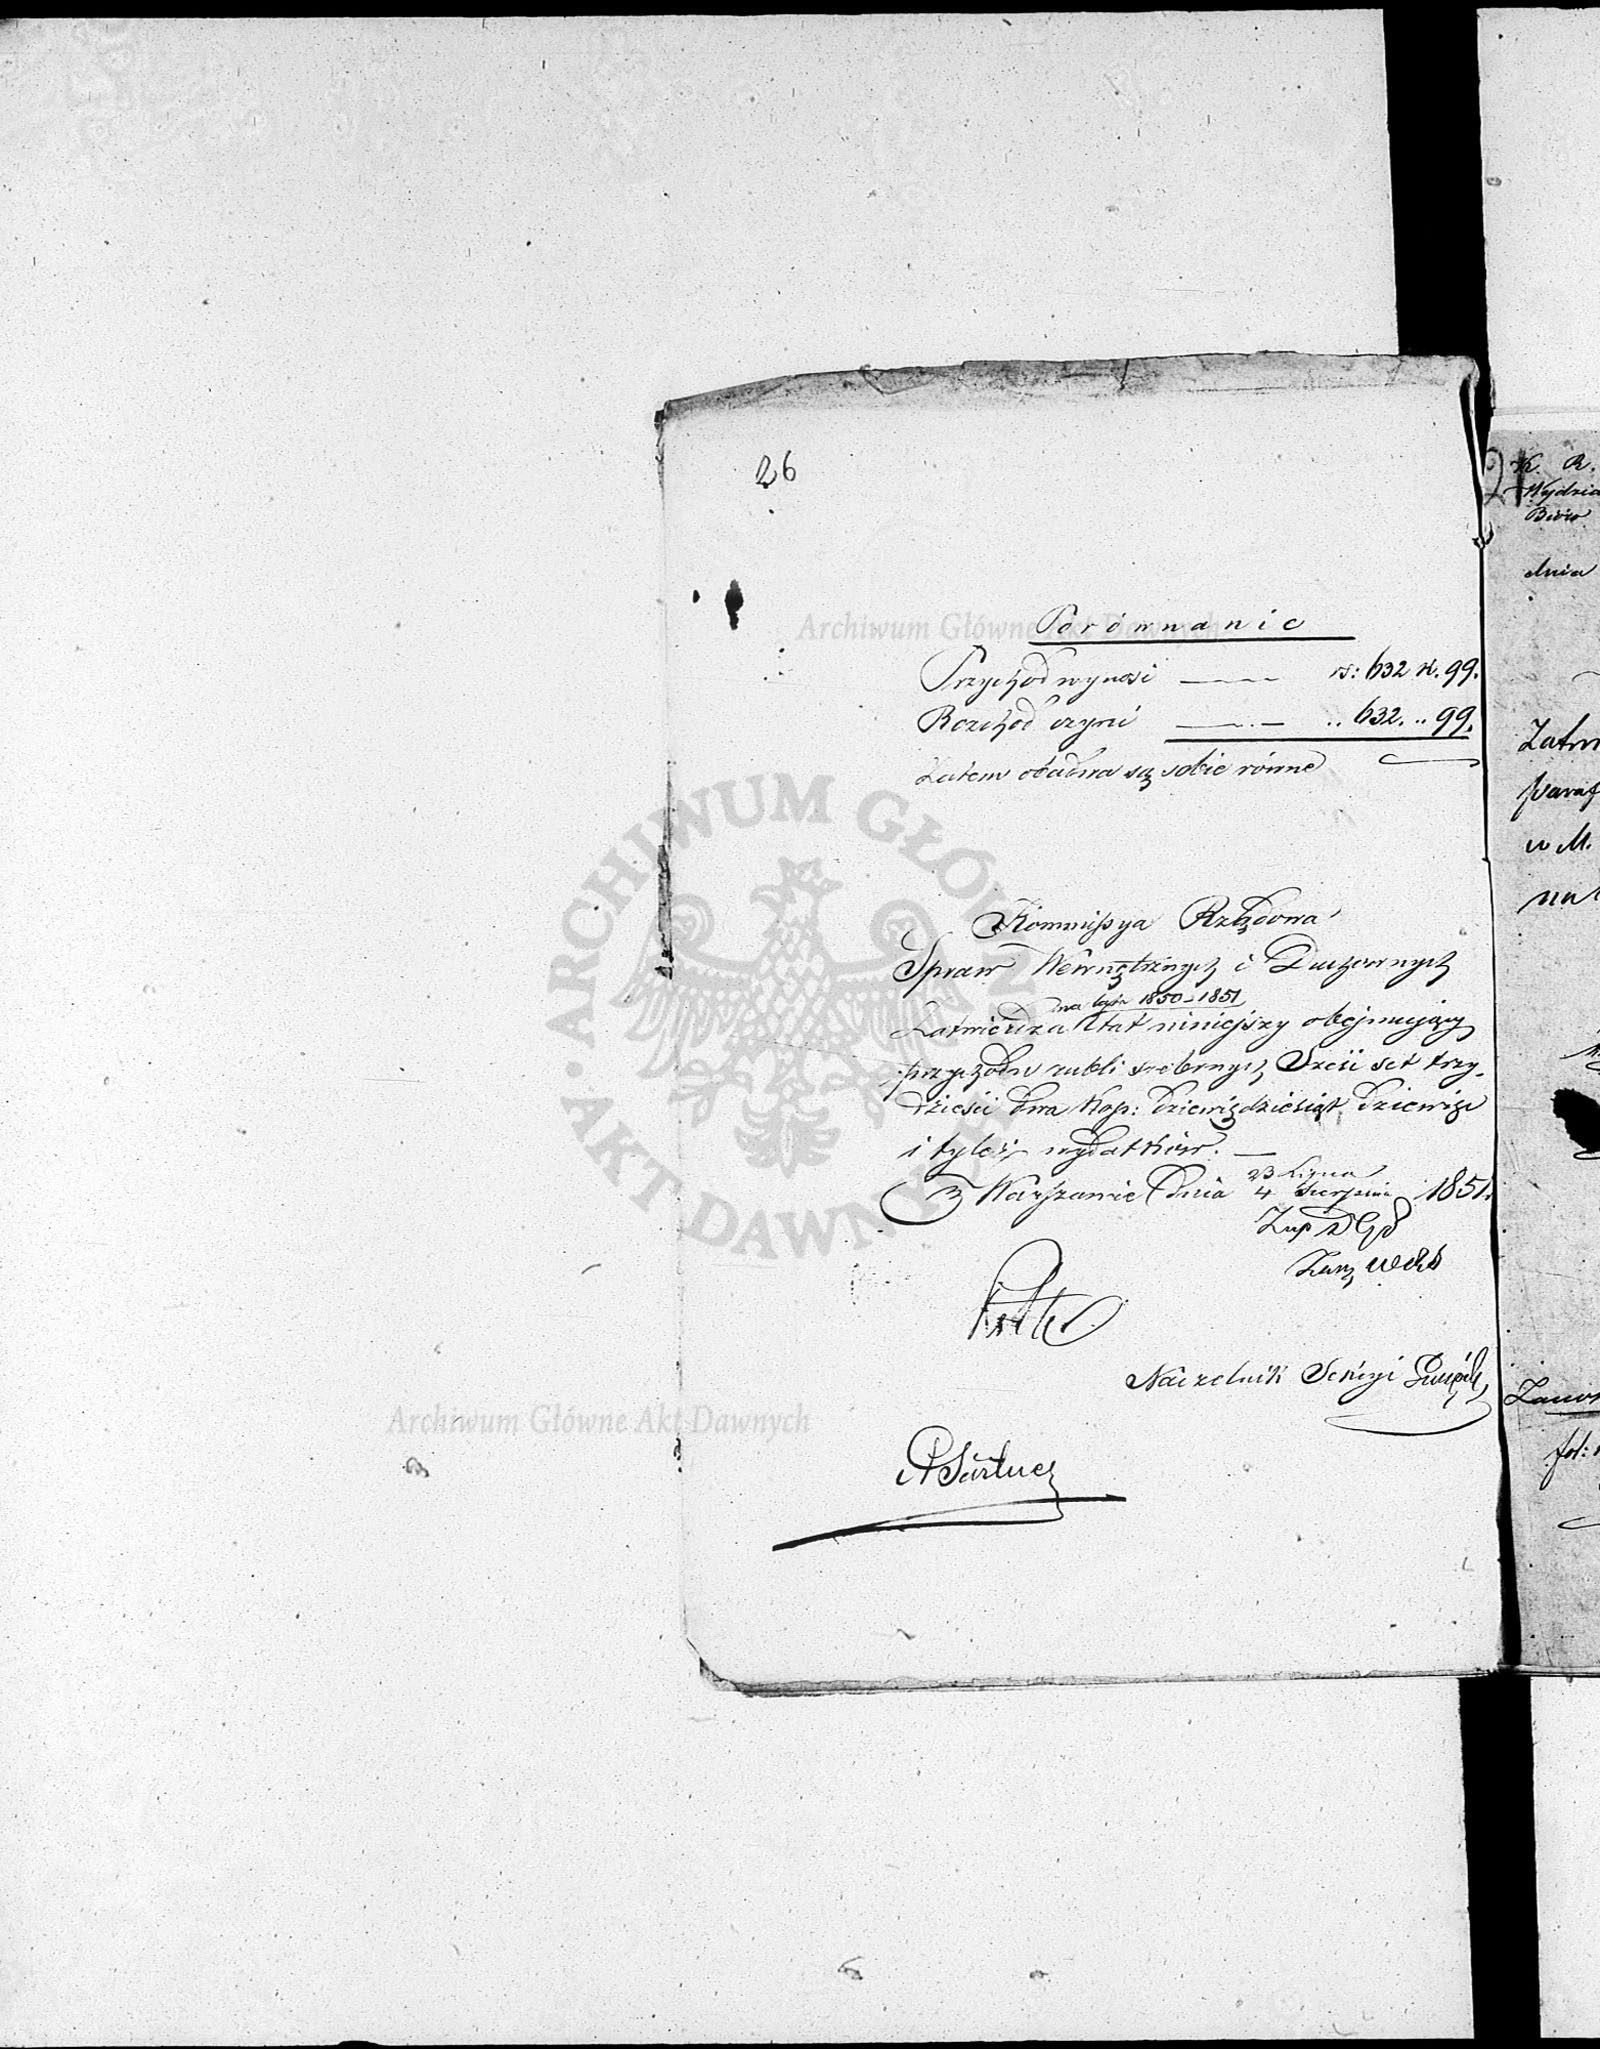 26
Porównanie
Przychod wynosi rs: 632 k. 99.
Rozchod czyni .. 632. .. 99.
Zatem obadwa są sobie równe
Kommissya Rządowa
Spraw Wewnętrznych i Duchownych
na lata 1850-1851
Zatwierdza Etat niniejszy obejmujący
przychodu rubli srebrnych Sześć set trzy-
dzieści dwa kop: dziewięćdziesiąt dziewięć
i tyleż wydatków.
w Warszawie Dnia 23 Lipca
4 Sierpnia 1851.
Naczelnik Sekcyi
K. R.
Wydzia
Biuro
dnia
Zatw
paraf
w M.
na
fol:
ARCHIWUM GŁÓWNE AKT DAWNYCH
Archiwum Główne Akt Dawnych
Archiwum Główne Akt Dawnych